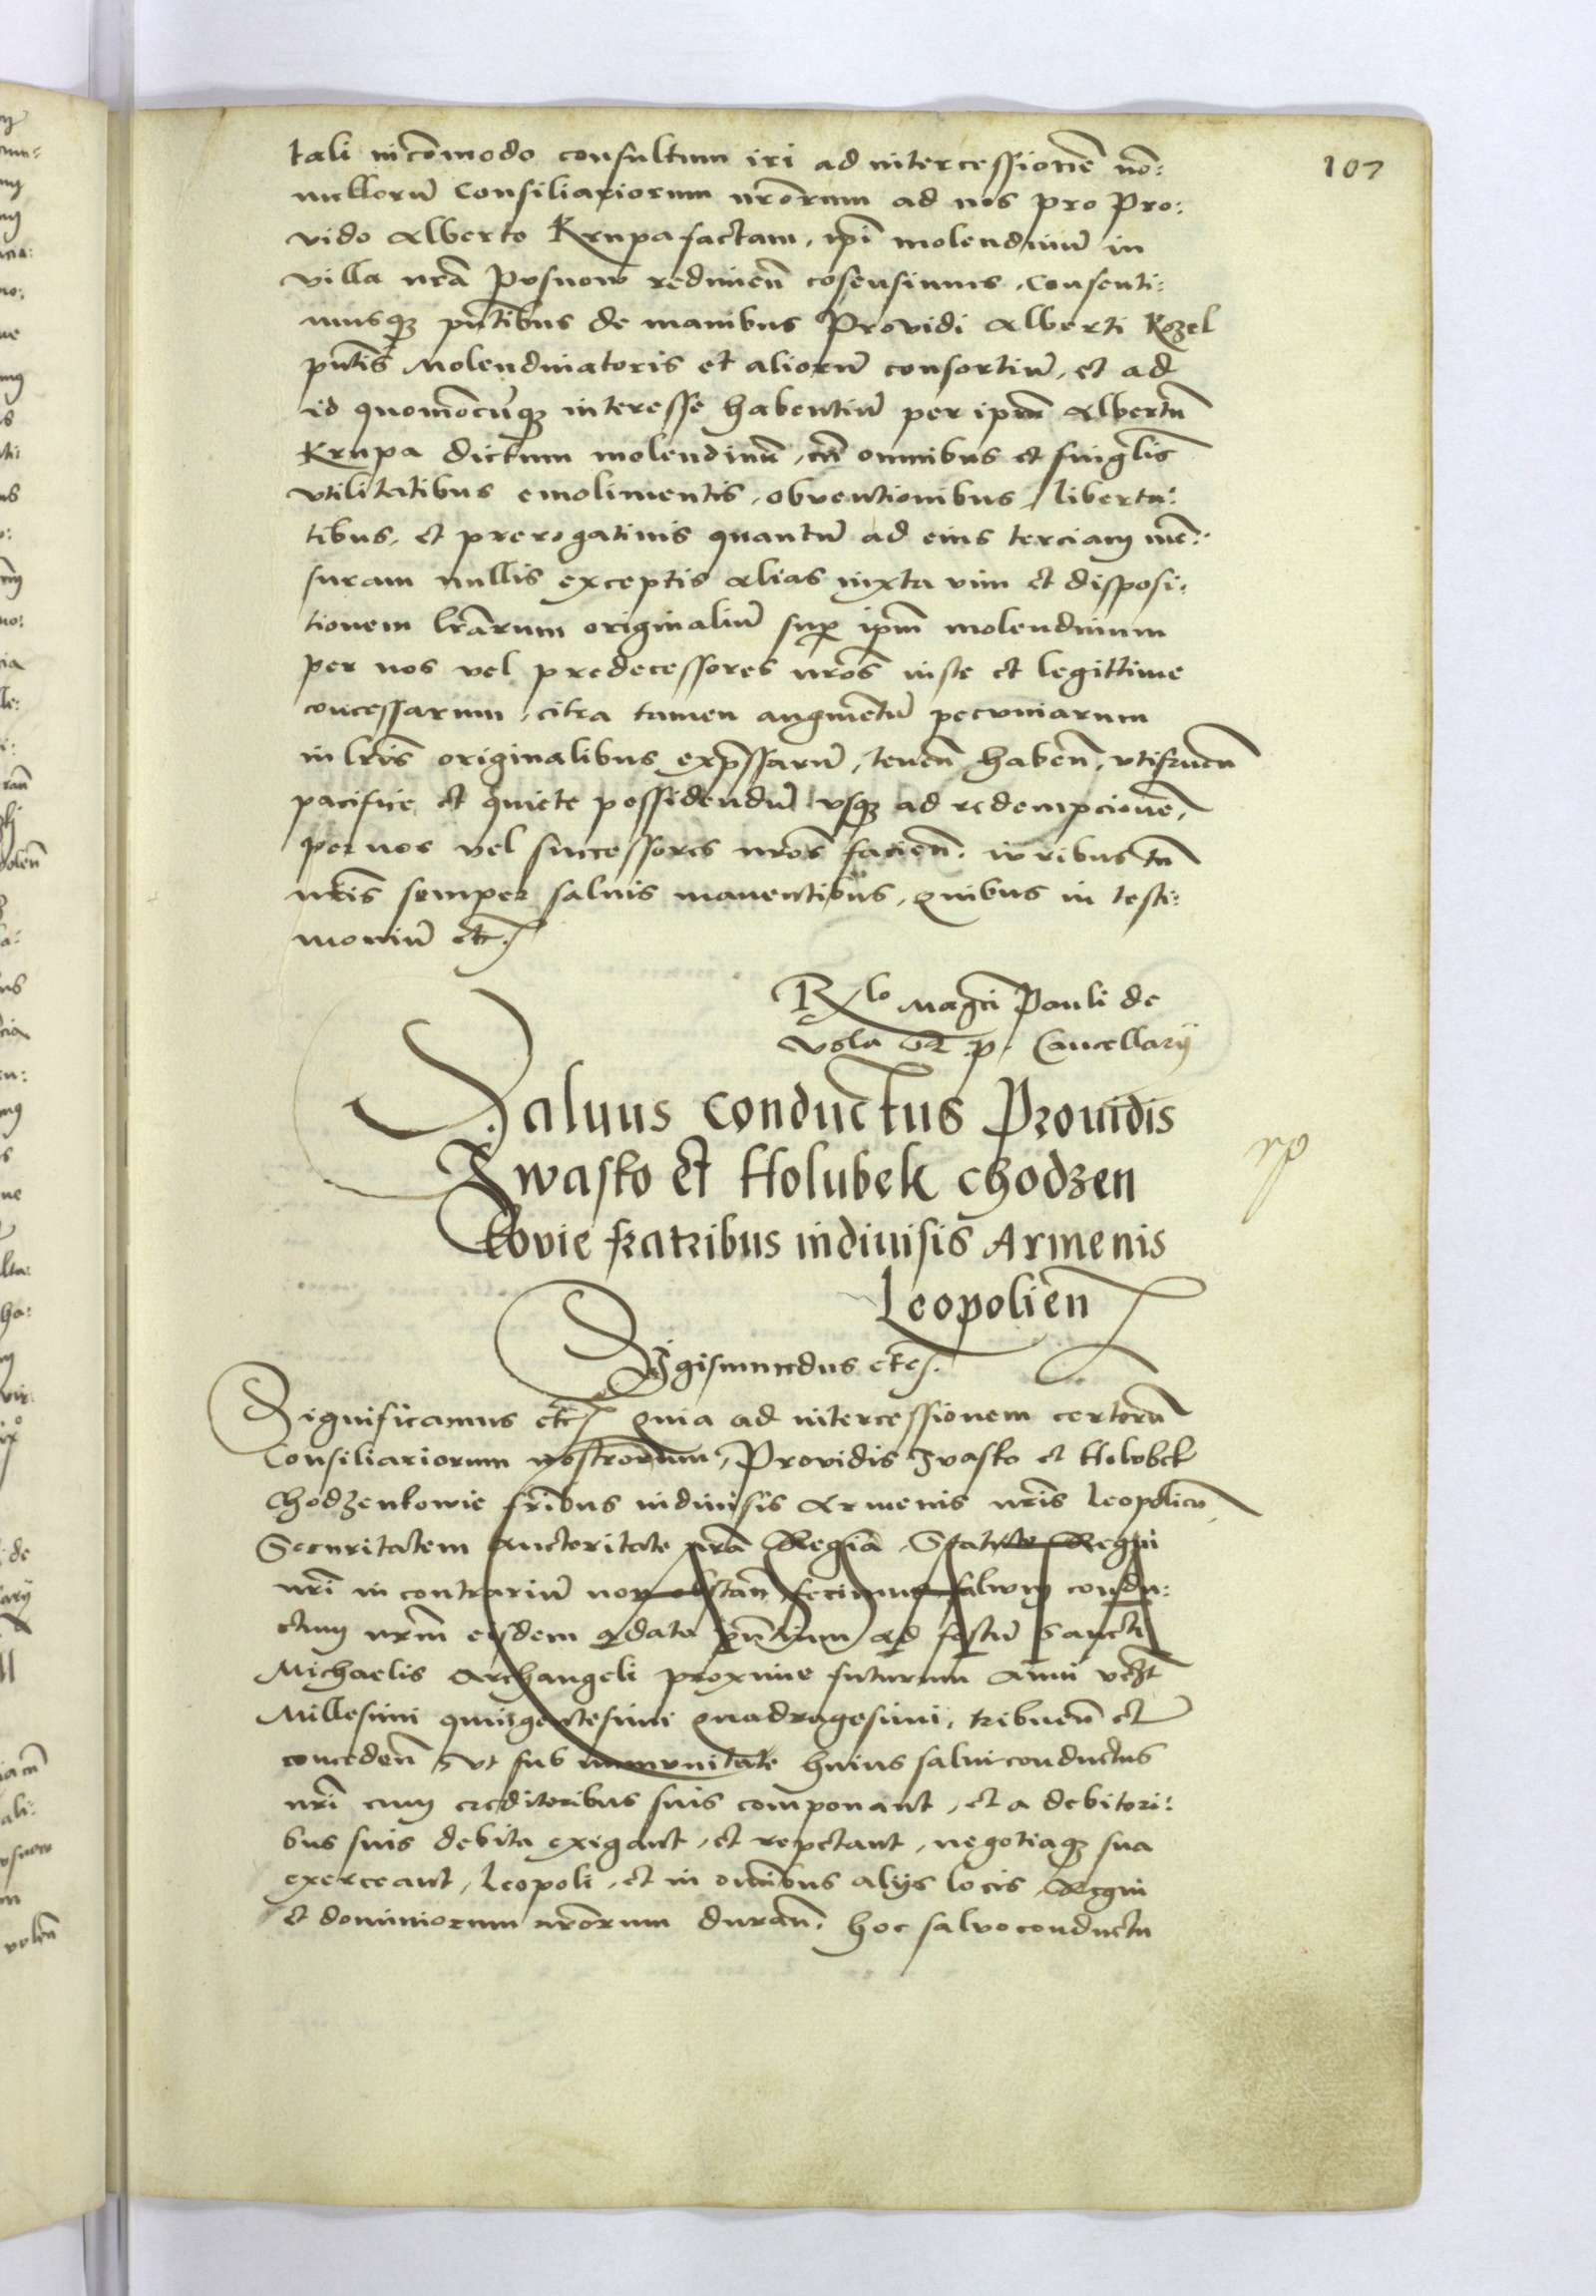 107
tali incōmodo consultum iri ad intercessionē nō:
nullorū Consiliariorum nrōrum ad nos pro Pro:
vido Alberto Krupa factam, ipī molendinū in
villa nrā Posnow redimeñ cōsensimus, Consenti:
musq̷ pn̄tibus de manibus Providi Alberti Kozel
pn̄tis Molendinatoris et aliorū consortiū, et ad
id quomōcūq̷ interesse habentiū per ipm̄ Albertū
Krupa dictum molendinū, cū omnibus et singlis̄
vtilitatibus emolimentis, obventionibus, liberta:
tibus, et prerogatiuis quantū ad eius terciam mē:
suram nullis exceptis alias iuxta vim et disposi:
tionem lrārum originaliū sup̄ ipm̄ molendinum
per nos vel predecessores nrōs iuste et legittime
concessarum, citra tamen augmētū pecuniarum
in lrīs originalibus exp̄ssarū, teneñ habeñ, vtifrueñ
pacifice et quiete possidendū vsq̷ ad redempcionē,
per nos vel successores nrōs facieñ. iuribus tn̄
nrīs semper saluis manentibus, quibus in testi:
moniū etc̄
Rlo Magci Pauli de
Vola R. p. Cancellarij
Saluus conductus Prouidis
Iwasko et Holubek chodzen
kovie fratribus indiuisis Armenis
Leopolieñ
Sigismundus etc̄.
Significamus etc̄ quia ad intercessionem certorū
Consiliariorum nostrorum, Providis Ivasko et Holubek
Chodzenkowie frībus indiuisis Armenis nrīs Leopolieñ,
Securitatem auctoritate nrā Regia Statuto Regni
nrī in contrariū non obstañ fecimus saluum condu:
ctum nrm̄ eisdem a data pn̄tium ad festū Sancti
Michaelis Archangeli proxime futurum Anni vtzt
Millesimi quingentesimi quadragesimi, tribueñ et
concedeñ vt sub immunitate huius saluiconductus
nrī cum creditoribus suis componant, et a debitori:
bus suis debita exigant, et repetant, negotiaq̷ sua
exerceant, Leopoli, et in omībus alijs locis, Regni
et dominiorum nrōrum durañ. hoc salvoconductu